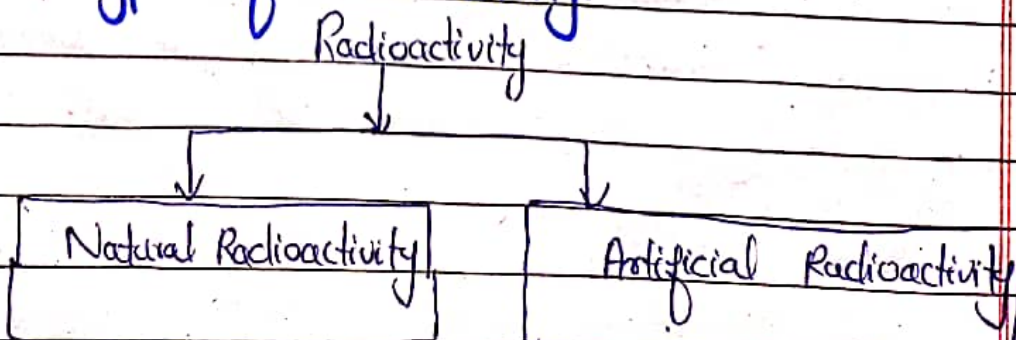 Radioactivity
Natural Radioactivity
Artificial Radioactivity